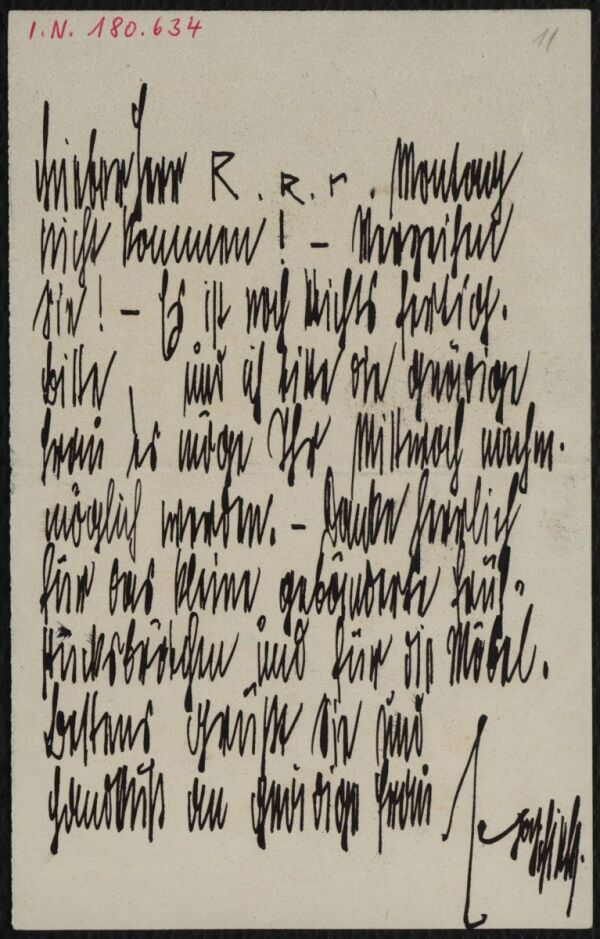 I.N. 180.634
11
Lieber Herr R. R. r. Montag
nicht kommen! – Verzeihen
Sie! – Es ist noch Nichts fertig.
bitte, und ich bitte die gnädige
Frau es möge Ihr Mittwoch nachm.
möglich werden. – Danke herzlich
für das kleine gebänderte Früh-
stücksbrötchen und für die Möbel.
Bestens Grüßt Sie und
Handkuß an gnädige Frau